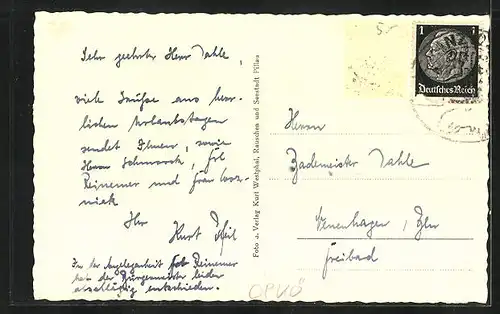 Sehr geehrter Herr Dahle,
viele Grüße aus herr-
lichen Urlaubstagen
sendet Ihnen, sowie
Herrn Schmorck, Frl
Reinemer und Frau
niack
Ihr
Kurt Pfeil
In der Angelegenheit Frl. Reinemer
hat der Bürgermeister leider
abschlägig entschieden.
Foto u. Verlag Kurt Westphal, Rauschen und Seestadt Pillau
5.-
1
Deutsches Reich
Herrn
Bademeister Dahle
Freibad
OPVÖ